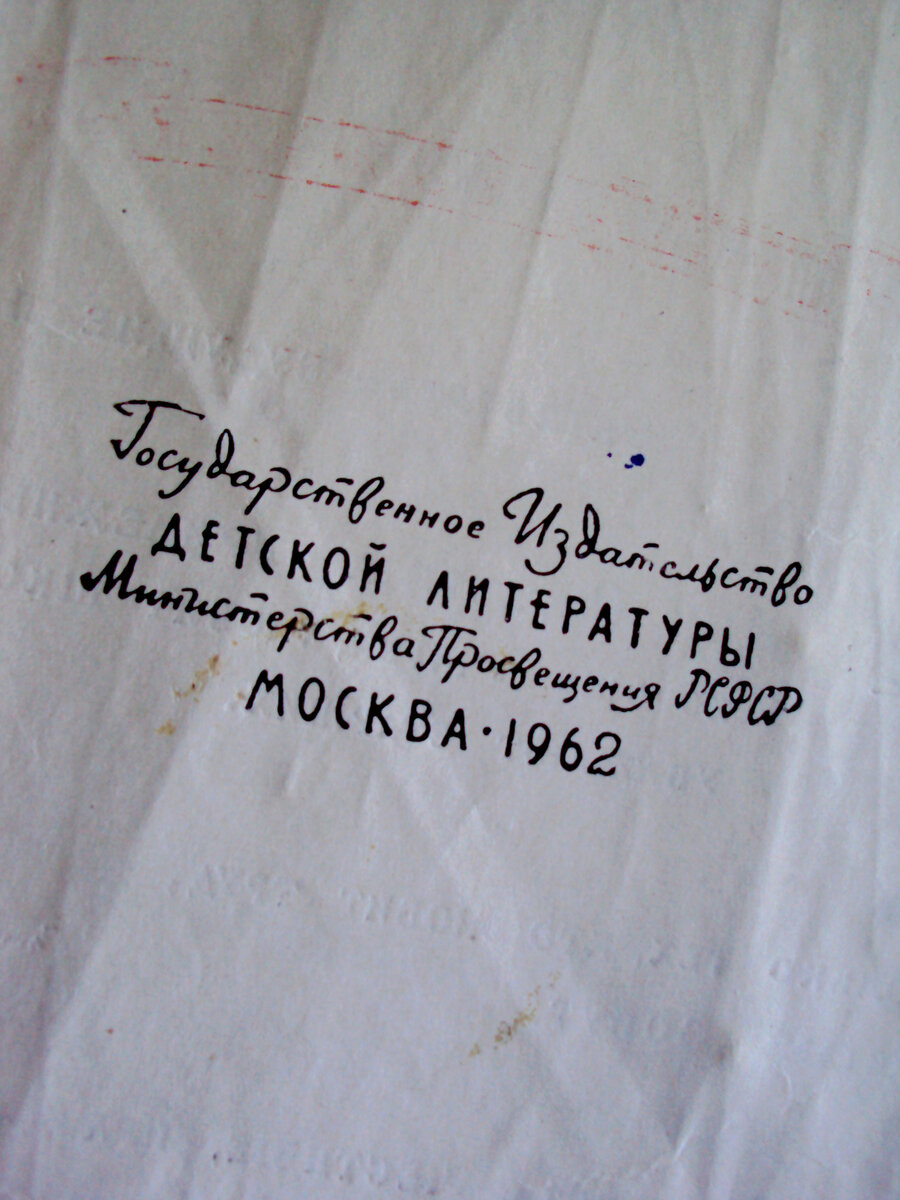 Государственное Издательство
ДЕТСКОЙ ЛИТЕРАТУРЫ
Министерства Просвещения РСФСР
МОСКВА·1962